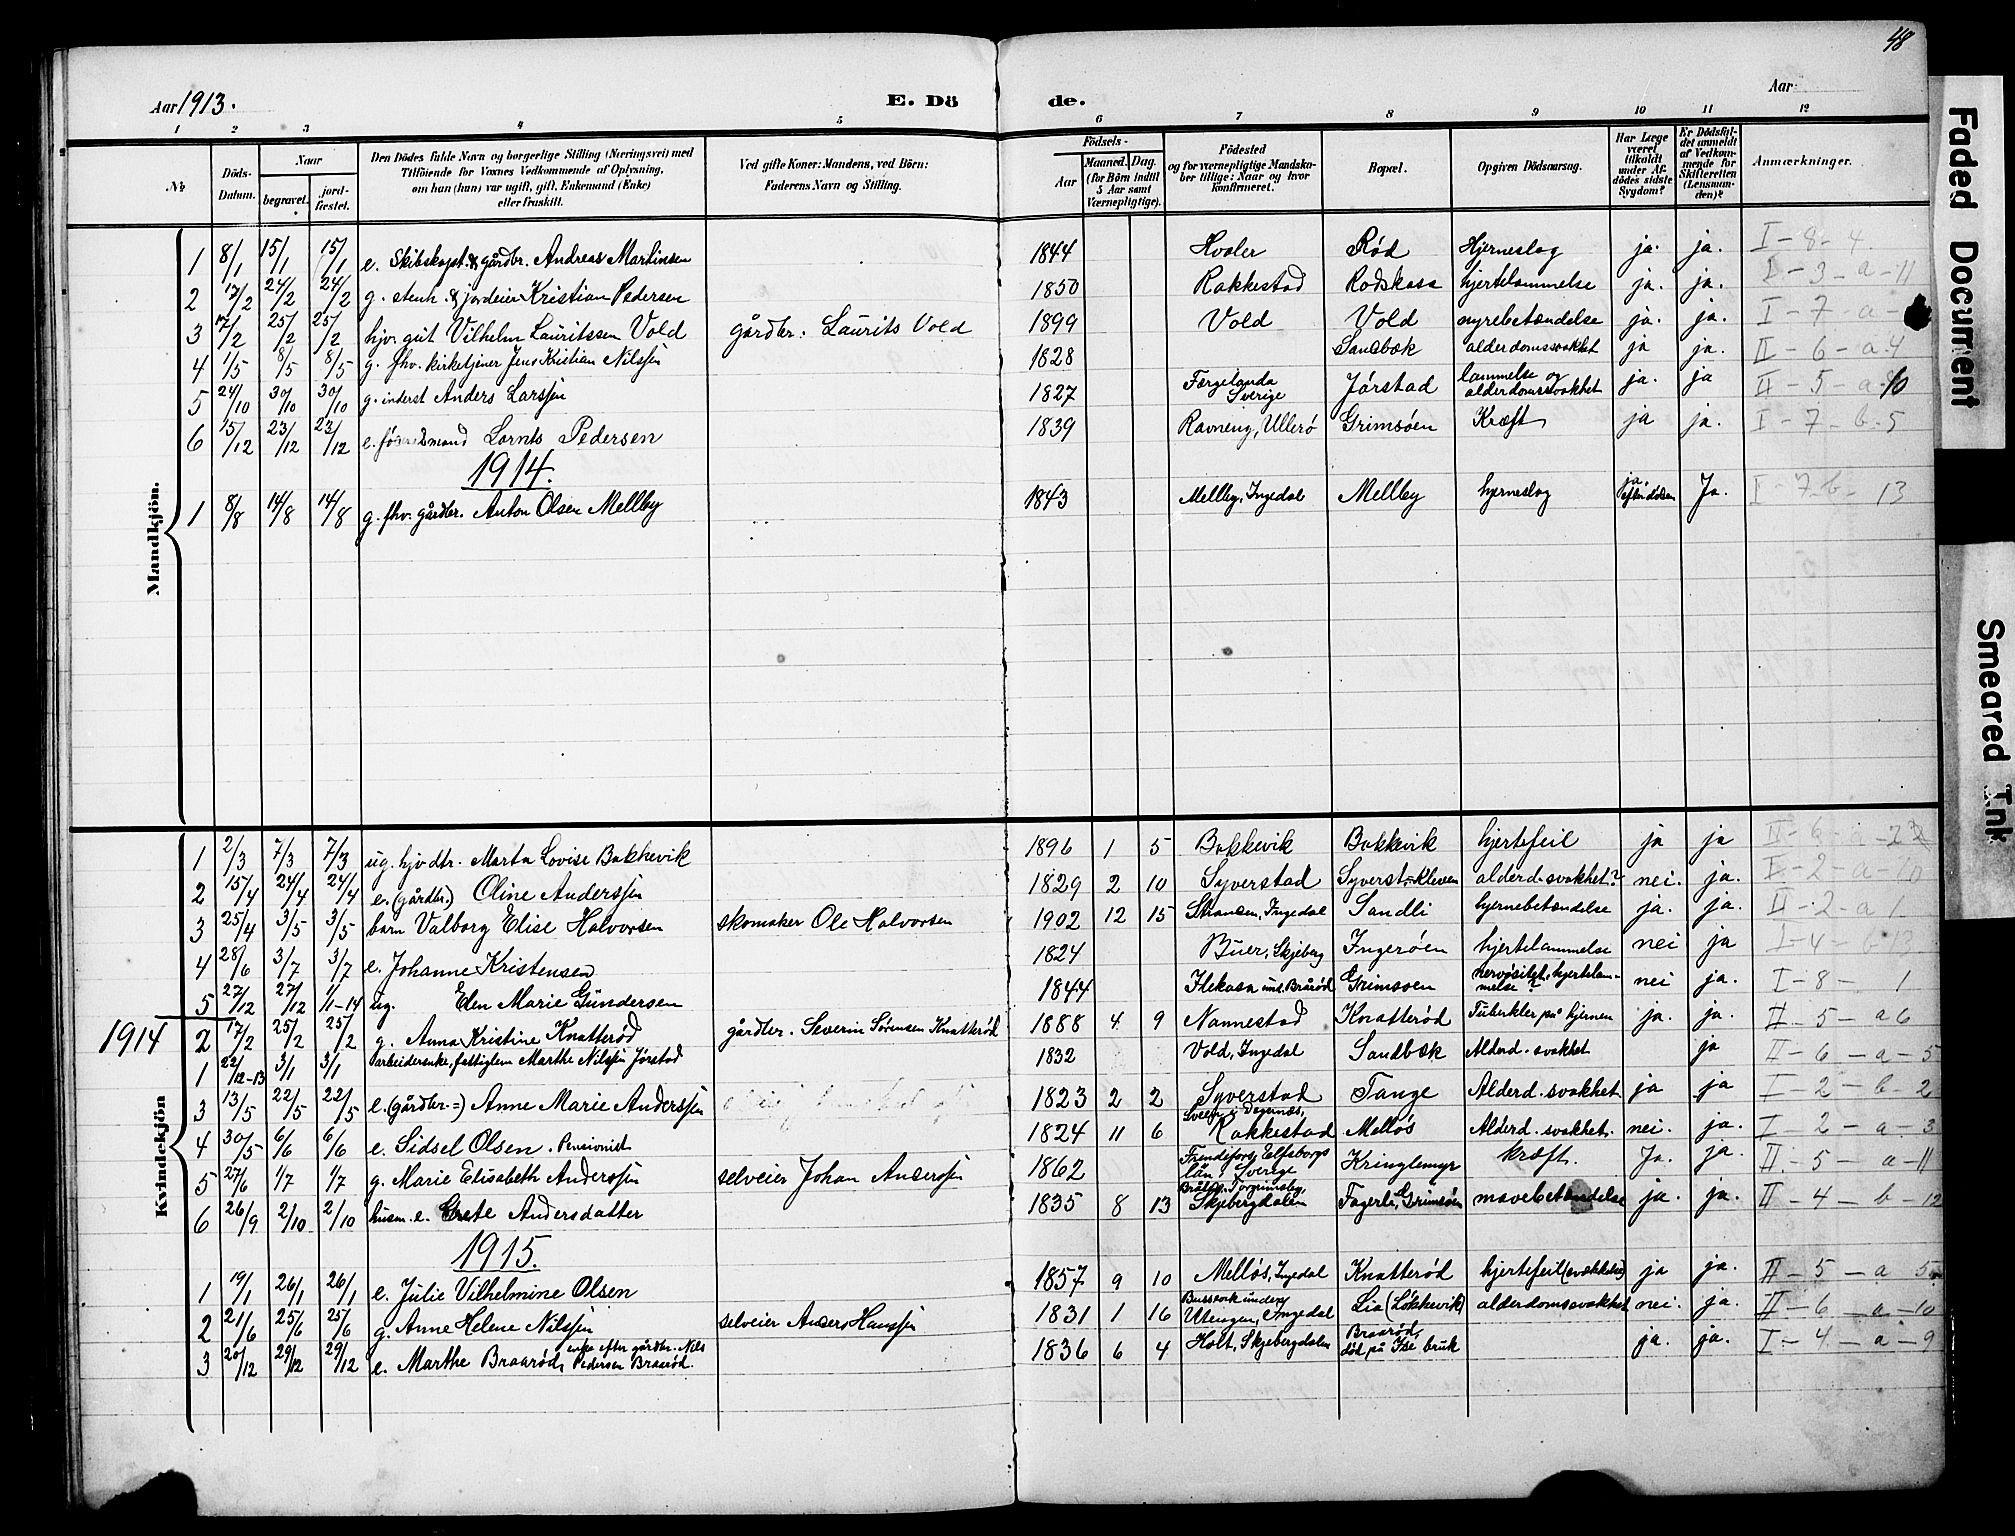 48
Aar 1913.
E. Dö de.
Aar
1 2 3 4 5 6 7 8 9 10 11 12
№
Döds-Datum.
Naar
begravet.
jord-fæstet.
Den Dödes fulde Navn og borgerlige Stilling (Næringsvei) med Tilföiende for Voxnes Vedkommende af Oplysning, om han (hun) var ugift, gift, Enkemand (Enke) eller fraskilt.
Ved gifte Koner: Mandens, ved Börn: Faderens Navn og Stilling.
Födsels-
Aar
Maaned. Dag.
(for Börn indtil 5 Aar samt Værnepligtige).
Födested og for værnepligtige Mandskaber tillige: Naar og hvor konfirmeret.
Bopæl.
Opgiven Dödsaarsag.
Har Læge været tilkaldt under Afdödes sidste Sygdom?
Er Dödsfaldet anmeldt af Vedkommende for Skifteretten (Lensmanden)?
Anmærkninger.
Mandkjön.
1 8/1 15/1 15/1 e. Skibskapt. & gårdbr. Andreas Martinsen 1844 Hvaler Rød Hjerneslag ja. ja. I-8-4
2 17/2 24/2 24/2 g. stenh. & jordeier Kristian Pedersen 1850 Rakkestad Rødskass hjertelammelse ja. ja. I-3-a-11
3 17/2 25/2 25/2 hjv. gut Vilhelm Lauritssen Vold gårdbr. Laurits Vold 1899 Vold Vold nyrebetændelse ja. ja. I-7-a-
4 1/5 8/5 8/5 g. fhv. kirketjener Jens Kristian Nilssen 1828 Sandbæk alderdomssvakhet ja ja. II-6-a-4
5 24/10 30/10 30/10 g. inderst Anders Larssen 1827 Færgelanda Sverige Jørstad lammelse og alderdomssvakhet ja. ja II-5-a-10
6 15/12 23/12 23/12 e. føderådsmand Lornts Pedersen 1839 Ravneng, Ullerø Grimsøen Kræft ja ja. I-7-b-5
1914.
1 8/8 14/8 14/8 g. fhv. gårdbr. Anton Olsen Mellby 1843 Mellby, Ingedal Mellby hjerneslag ja efter døden Ja. I-7-b-13
Kvindekjön
1 2/3 7/3 7/3 ug. hjv. dtr. Marta Lovise Bakkevik 1896 1 5 Bakkevik Bakkevik hjertefeil ja ja II-6-a-2
2 15/4 24/4 24/4 e. (gårdbr.) Oline Anderssen 1829 2 10 Syverstad Syverst.-Kleven alderd.svakhet? nei. ja. I-2-a-10
3 25/4 3/5 3/5 barn Valborg Elise Halvorsen skomaker Ole Halvorsen 1902 12 15 Stransen, Ingedal Sandli hjernebetændelse ja. ja. II-2-a 1
4 28/6 3/7 3/7 e. Johanne Kristensen 1824 Buer, Skjeberg Ingerøen hjertelammelse nei ja I-4-b-13
5 27/12 27/12 1/1-14 ug. Elen Marie Gundersen 1844 Ilekasa und. Brårød Grimsøen nervøsitet, hjertelammelse? nei ja. I-8- 1
1914 2 17/2 25/2 25/2 g. Anna Kristine Knatterød gårdbr. Severin Sørensen Knatterød 1888 4 9 Nannestad Knatterød Tuberkler på hjernen ja. ja. II-5-a 6
1 22/12-13 3/1 3/1 arbeiderenke, fattiglem Marthe Nilssen Jørstad 1832 Vold, Ingedal Sandbæk Alderd.svakhet ja II-6-a-5
3 13/5 22/5 22/5 e. (gårdbr=) Anne Marie Anderssen 1823 2 2 Syverstad Tange Alderd.svakhet ja ja I-2-b-2
4 30/5 6/6 6/6 e. Sidsel Olsen. Pensionist 1824 11 6 Sveen i Degernæs, Rakkestad Melløs Alderd.svakhet. nei. ja. I-2-a-3
5 27/6 1/7 1/7 g. Marie Elisabeth Anderssen selveier Johan Anderssen 1862 Frendefors Elfsborgs län Sverige Kringlemyr kræft. Ja. ja. II-5-a-11
6 26/9 2/10 2/10 husm. e. Grete Andersdatter 1835 8 13 Torgrimsby Skjebergdalen Fagerli, Grimsøen mavebetændelse ja. ja. II-4-b-12
1915.
1 19/1 26/1 26/1 e. Julie Vilhelmine Olsen 1857 9 10 Melløs, Ingedal Knatterød hjertefeil (svækkelse) ja ja. II-5-a-5
2 21/6 25/6 25/6 g. Anne Helene Nilssen selveier Anders Hanssen 1831 1 16 under Utengen, Ingedal Lia (Løkkevik) alderdomssvakhet nei. ja. II-6-a-10
3 20/12 29/12 29/12 e. Marthe Braarød, enke efter gårdbr. Nils Pedersen Braarød. 1836 6 4 Holt, Skjebergdalen Braarød, død på Ise bruk ja. ja. I-4-a-9
Faded Document
Smeared Ink